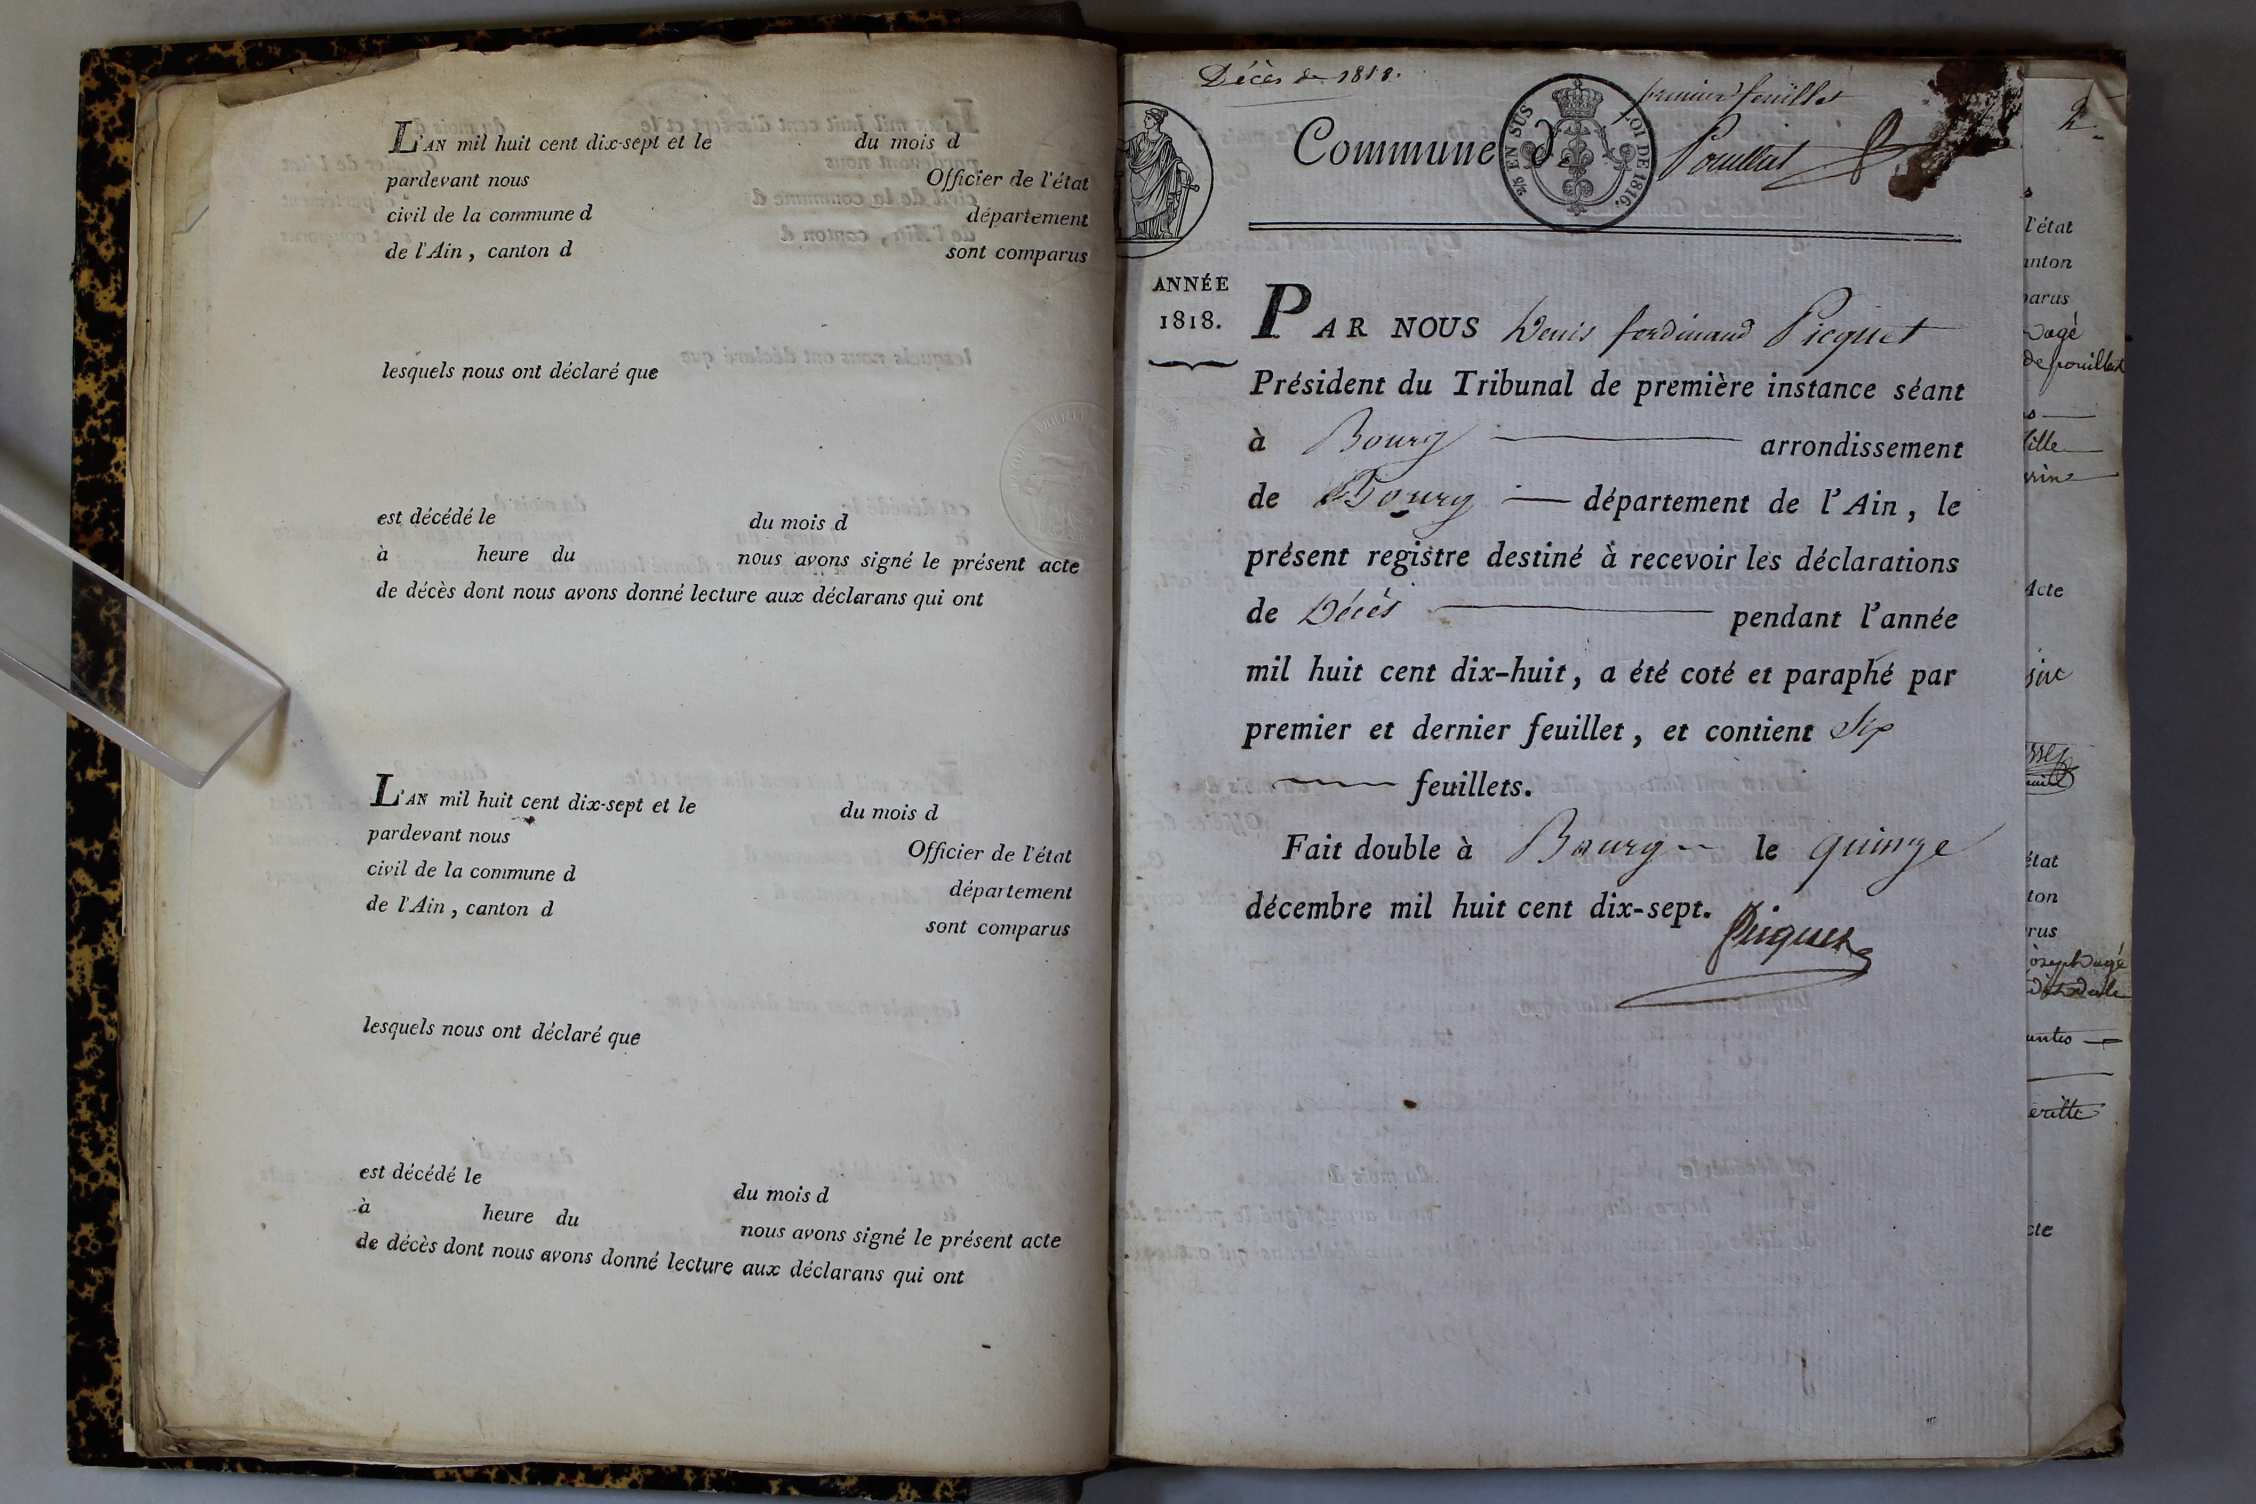 L'AN mil huit cent dix-sept et le du mois d
pardevant nous Officier de l'état
civil de la commune d département
de l'Ain, canton d sont comparus
lesquels nous ont déclaré que
est décédé le du mois d
à heure du nous avons signé le présent acte
de décès dont nous avons donné lecture aux déclarans qui ont
L'AN mil huit cent dix-sept et le du mois d
pardevant nous Officier de l'état
civil de la commune d département
de l'Ain, canton d sont comparus
lesquels nous ont déclaré que
est décédé le du mois d
à heure du nous avons signé le présent acte
de décès dont nous avons donné lecture aux déclarans qui ont
Décès de 1818.
premier feuillet
Commune d Pouillat
2/5 EN SUS LOI DE 1816.
ANNÉE
1818.
PAR NOUS Denis ferdinand Picquet
Président du Tribunal de première instance séant
à Bourg arrondissement
de Bourg département de l'Ain, le
présent registre destiné à recevoir les déclarations
de Décès pendant l'année
mil huit cent dix-huit, a été coté et paraphé par
premier et dernier feuillet, et contient Six
feuillets.
Fait double à Bourg le quinze
décembre mil huit cent dix-sept.
Picquet
2
l'état
anton
parus
agé
de pouillat
fille
Acte
état
ton
rus
joseph agé
cte